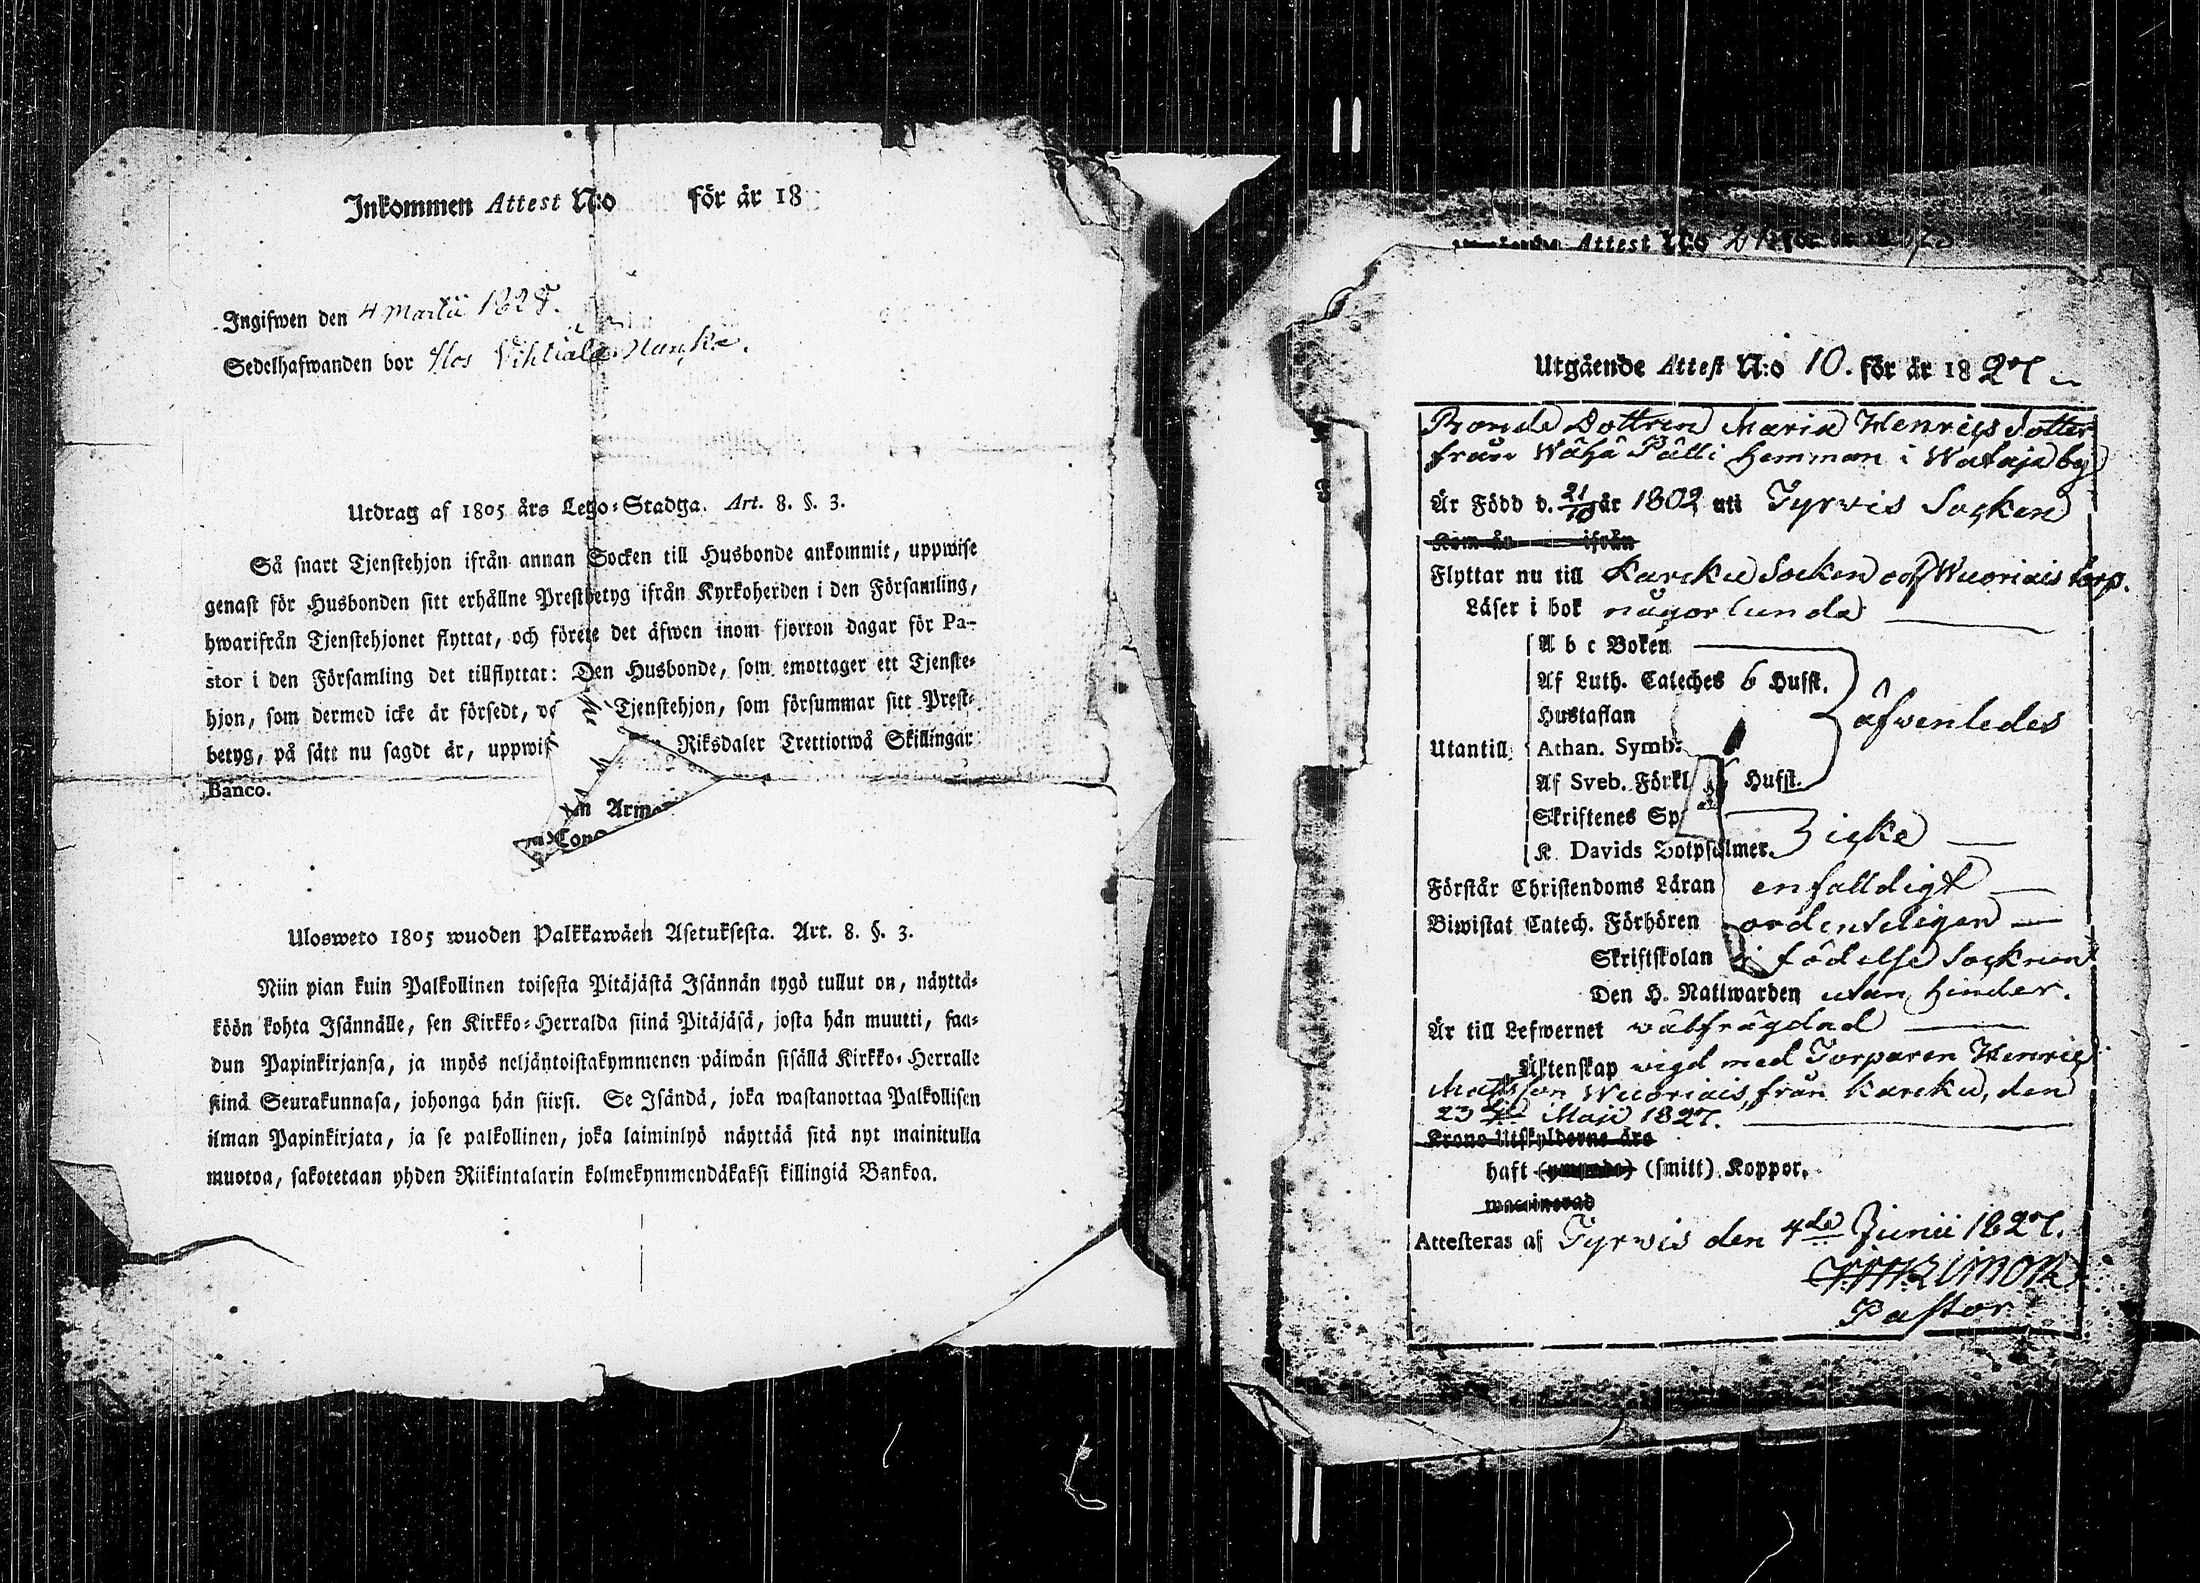 Inkommen Attest N:o för år 18
Ingifwen den 4 Martii 1828.
Sedelhafwanden bor Hos Vihtiälä Hanka.
Utdrag af 1805 års Lego=Stadga. Art. 8. §. 3.
Så snart Tjenstehjon ifrån annan Socken till Husbonde ankommit, uppwise
genast för Husbonden sitt erhållne Prestbetyg ifrån Kyrkoherden i den Församling,
hwarifrån Tjenstehjonet flyttat, och förete det äfwen inom fjorton dagar för Pa-
stor i den Församling det tillflyttat: Den Husbonde, som emottager ett Tjenste=
hjon, som dermed icke är försedt, Tjenstehjon, som försummar sitt Prest=
betyg, på sätt nu sagdt är, uppwis Riksdaler Trettiotwå Skillingar
Banco.
Ulosweto 1805 wuoden Palkkawäen Asetuksesta. Art. 8. §. 3.
Niin pian kuin Palkollinen toisesta Pitäjästä Isännän tygö tullut on, näyttä=
köön kohta Isännälle, sen Kirkko=Herralda siinä Pitäjäsä, josta hän muutti, saa=
dun Papinkirjansa, ja myös neljäntoistakymmenen päiwän sisällä Kirkko=Herralle
siinä Seurakunnasa, johonga hän siirsi. Se Isändä, joka wastanottaa Palkollisen
ilman Papinkirjata, ja se palkollinen, joka laiminlyö näyttää sitä nyt mainitulla
muotoa, sakotetaan yhden Riikintalarin kolmekymmendäkaksi killingiä Bankoa.
Attest N:o
Utgående Attest N:o 10. för år 1827
Bonde Dottren Maria Henrics Dotter
från Wähä Pälli hemman i Wataja by
Är Född d. 21/10 år 1802 uti Tyrvis Socken
Kom år ifrån
Flyttar nu till Karcku Socken och Wuoriais torp.
Läser i bok någorlunda
A b c Boken
Af Luth. Cateches 6 Hufst.
Hustaflan
äfwenledes
Utantill Athan. Symb.
Af Sveb. Förkl Hufst.
Skriftenes Sp
icke
K. Davids Botpsalmer.
Förstår Christendoms Läran enfalldigt
Biwistat Catech. Förhören ordenteligen
Skriftskolan i födelse Socknen
Den H. Nattwarden utan hinder.
Är till Lefwernet wälfrägdad
Äktenskap wigd med Torparen Henric
Matsson Wuoriais, från Karcku, den
23 Maji 1827.
Krono Utskylderne års
haft (ympade) (smitt) Koppor.
waccinerad
Attesteras af Tyrvis den 4de Junii 1827.
Pastor